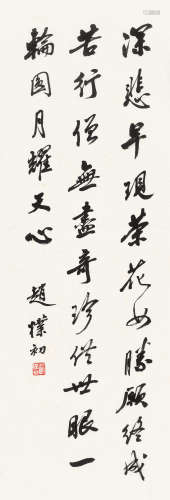 深悲早現茶花女勝願終成
苦行僧無盡奇珍供世眼一
輪圓月耀天心
趙樸初